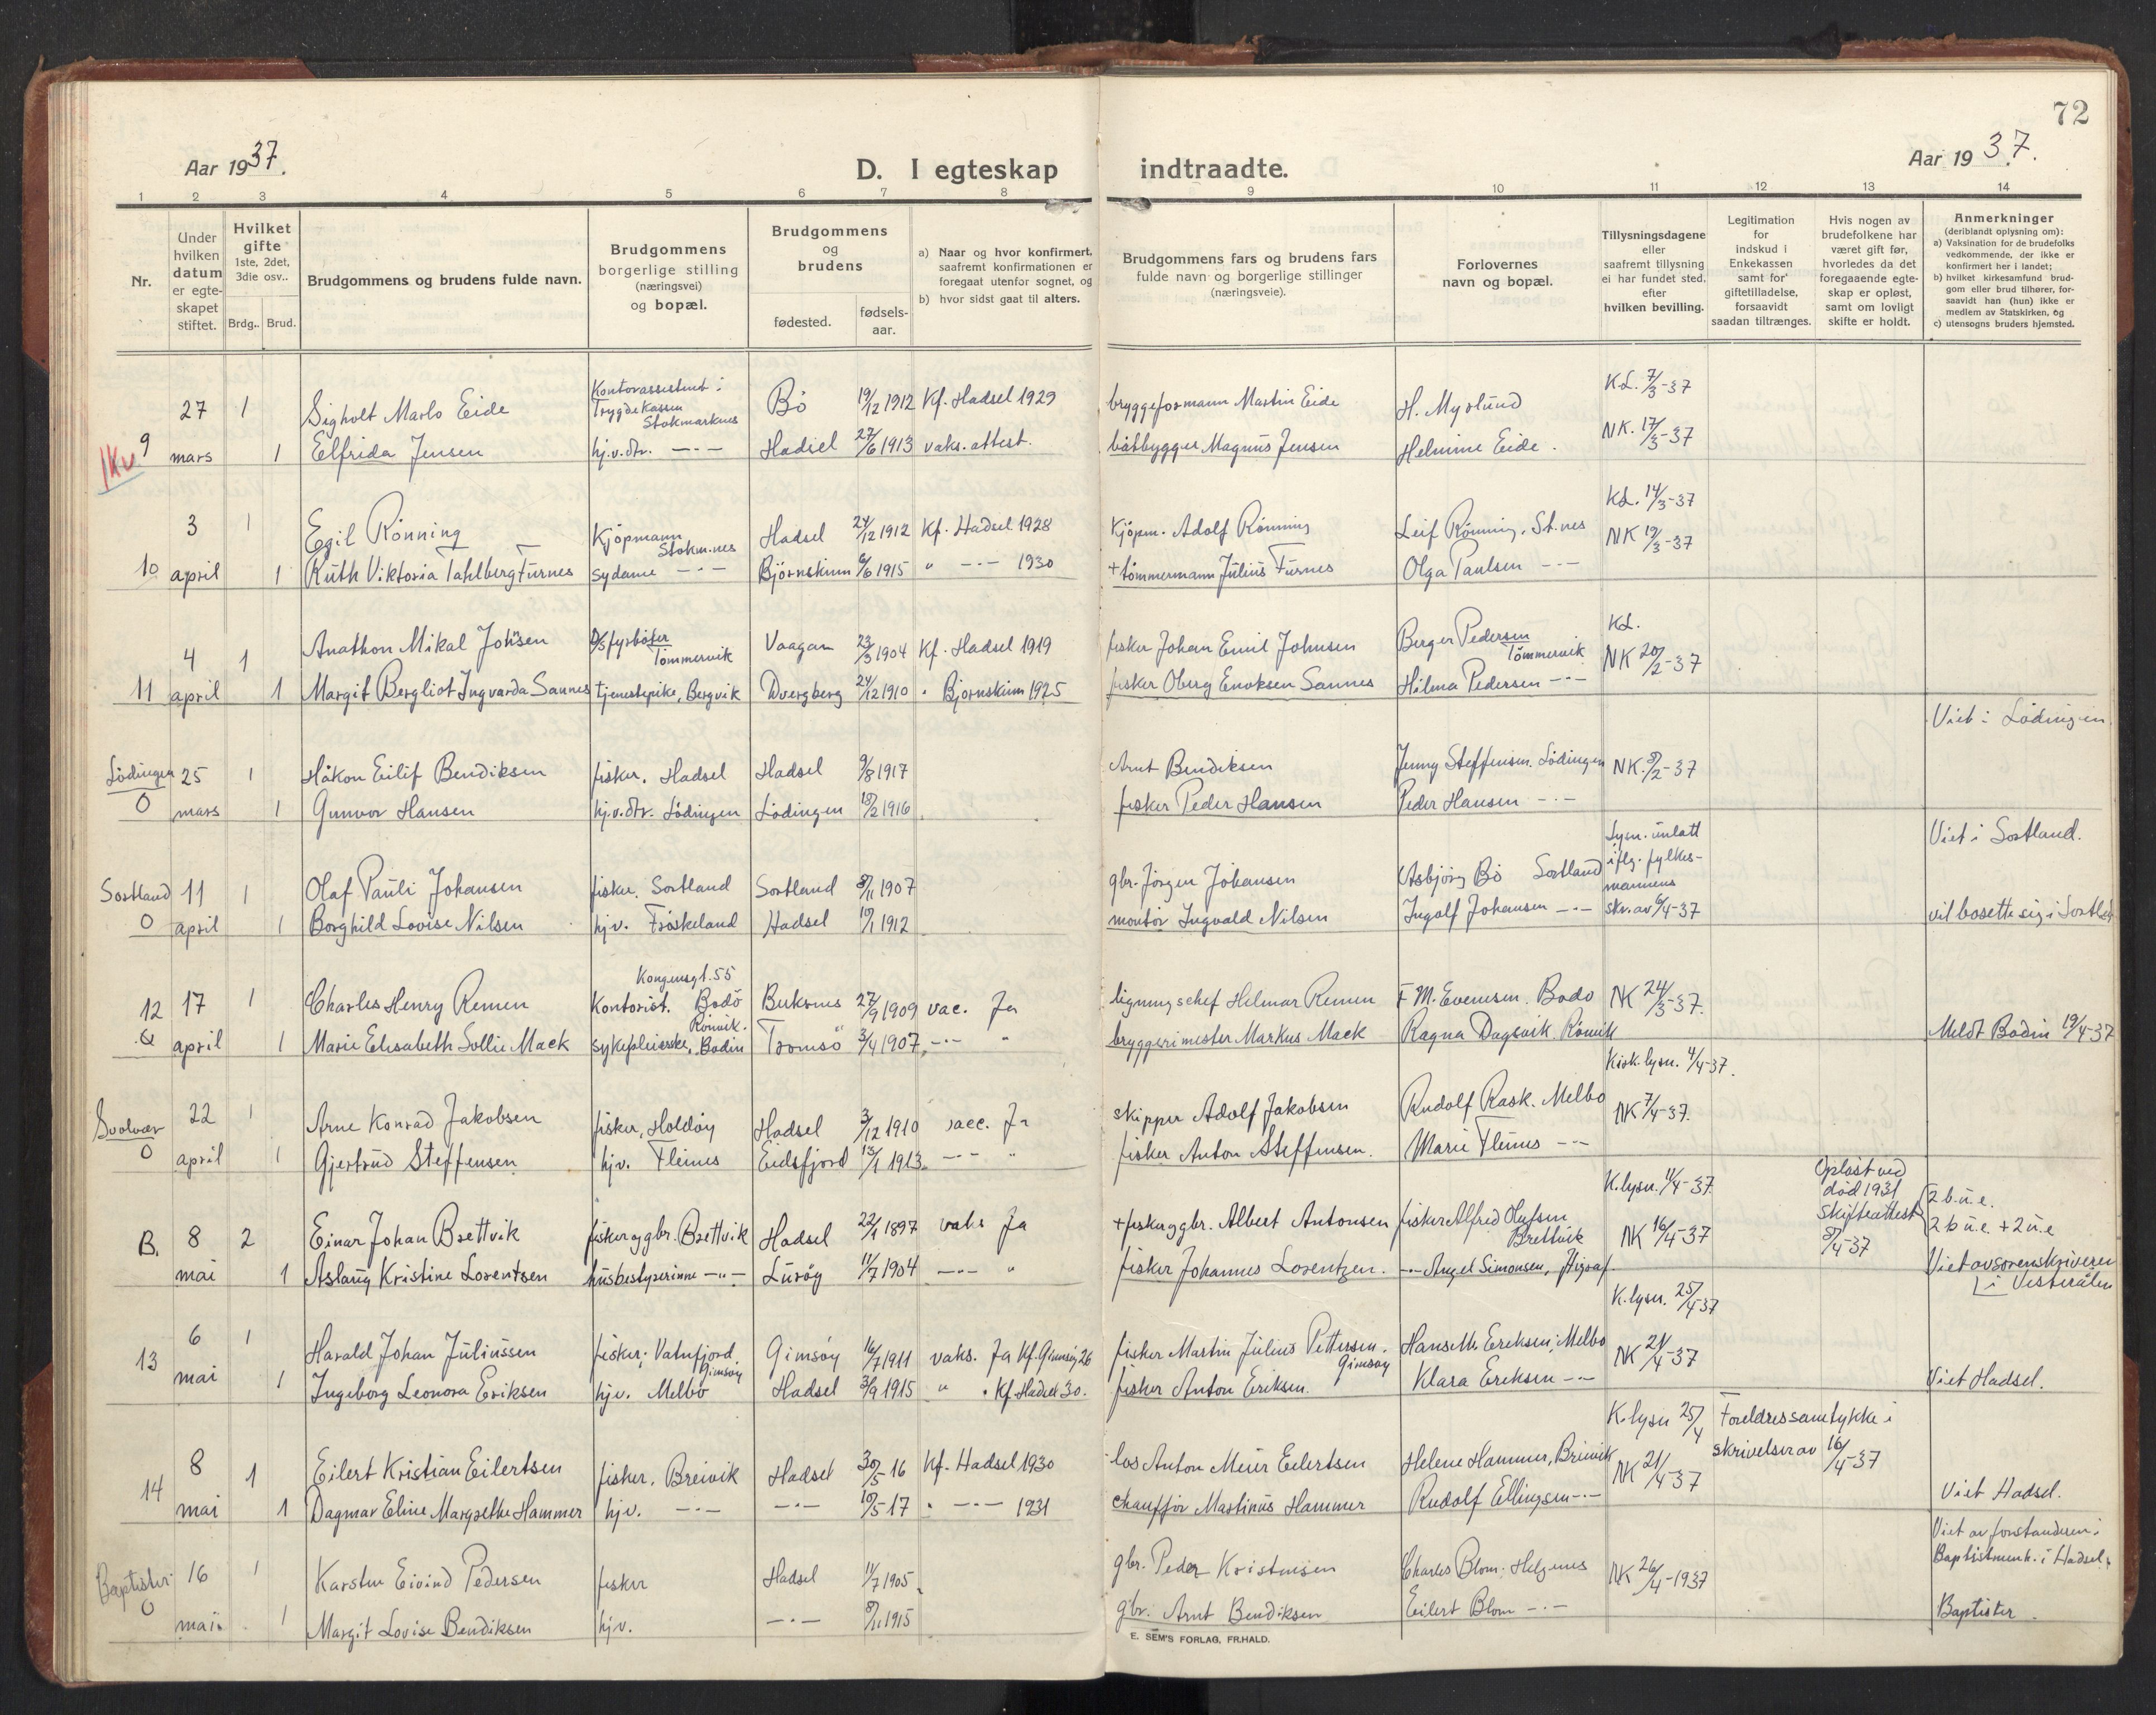 72
Aar 1937.
D. I egteskap indtraadte.
Aar 1937.
1 2 3 4 5 6 7 8 9 10 11 12 13 14
Nr.
Under hvilken datum er egteskapet stiftet.
Hvilket gifte 1ste, 2det, 3die osv..
Brdg.. Brud.
Brudgommens og brudens fulde navn.
Brudgommens borgerlige stilling (næringsvei) og bopæl.
Brudgommens og brudens
fødested. fødselsaar.
a) Naar og hvor konfirmert, saafremt konfirmationen er foregaat utenfor sognet, og
b) hvor sidst gaat til alters.
Brudgommens fars og brudens fars fulde navn og borgerlige stillinger (næringsveie).
Forlovernes navn og bopæl.
Tillysningsdagene eller saafremt tillysning ei har fundet sted, efter hvilken bevilling.
Legitimation for indskud i Enkekassen samt for giftetilladelse, forsaavidt saadan tiltrænges.
Hvis nogen av brudefolkene har været gift før, hvorledes da det foregaaende egteskap er opløst, samt om lovligt skifte er holdt.
Anmerkninger (deriblandt oplysning om):
a) Vaksination for de brudefolks vedkommende, der ikke er konfirmert her i landet;
b) hvilket kirkesamfund brudgom eller brud tilhører, forsaavidt han (hun) ikke er medlem av Statskirken, og
c) utensogns bruders hjemsted.
27 1 Sigholt Marlo Eide Kontorassistent i Trygdekassen Stokmarknes Bö 19/12 1912 Kf. Hadsel 1929 bryggeformann Martin Eide H. Myrlund K.L. 7/3-37
9 mars 1 Elfrida Jensen hj.v.dtr. -"- Hadsel 27/6 1913 vaks. attest. båtbygger Magnus Jensen Helmine Eide. NK. 17/3-37
3 1 Egil Rönning Kjöpmann Stokm.nes Hadsel 24/12 1912 Kf. Hadsel 1928 Kjöpm. Adolf Rönning Leif Rönning, St.nes KL. 14/3-37
10 april 1 Ruth Viktoria Tahlberg Furnes sydame -"- Björnskinn 6/6 1915 " -"- 1930 + tömmermann Julius Furnes Olga Paulsen -"- NK 19/3-37
4 1 Anathon Mikal Johnsen D/S fyrböter Tömmervik Vaagan 23/3 1904 Kf. Hadsel 1919 fisker Johan Emil Johnsen Berger Pedersen Tömmervik KL.
11 april 1 Margit Bergliot Ingvarda Sannes tjenestepike, Bergvik Dverberg 24/12 1910 " Bjørnskinn 1925 fisker Oberg Enoksen Sannes Hilma Pedersen -"- NK 20/2-37
Viet i Lödingen
Lödingen 25 1 Håkon Eilif Bendiksen fisker, Hadsel Hadsel 9/8 1917 Arnt Bendiksen Jenny Steffensen. Lödingen NK. 8/2-37
0 mars 1 Gunvor Hansen hj.v.dtr. Lödingen Lödingen 18/2 1916 fisker Peder Hansen Peder Hansen -"-
Sortland 11 1 Olaf Pauli Johansen fisker. Sortland Sortland 8/11 1907 gbr. Jörgen Johansen Asbjörg Bö Sortland Lysn. unlatt iflg. fylkesmannens Viet i Sortland.
0 april 1 Borghild Lovise Nilsen hj.v. Fröskeland Hadsel 19/1 1912 montör Ingvald Nilsen Ingolf Johansen -"- skr. av 6/4-37 vil bosette sig i Sortland
12 17 1 Charles Henry Remen Kontorist. Kongensgt. 55 Bodö Buksnes 27/9 1909 vac. Ja ligningschef Helmar Remen F.M. Evensen. Bodö NK 24/3-37.
april 1 Marie Elisabeth Sollie Mack sykepleierske, Rönvik. Bodin Tromsö 3/4 1907 -"- " bryggerimester Markus Mack Ragna Dagsvik. Rönvik Meldt Bodin 19/4-37
Svolvær 22 1 Arne Konrad Jakobsen fisker, Holdöy Hadsel 3/12 1910 vacc. Ja skipper Adolf Jakobsen Rudolf Rask. Melbo Kirk. lysn. 4/4-37.
0 april 1 Gjertrud Steffensen hj.v. Fleines Eidsfjord 13/1 1913 -"- " fisker Anton Steffensen. Marie Fleines -"- NK 7/4-37.
B. 8 2 Einar Johan Brettvik fisker og gbr. Brettvik Hadsel 22/1 1897 vaks Ja + fisker og gbr. Albert Antonsen fisker Alfred Olufsen Brettvik K.lysn. 11/4-37. Oplöst ved död 1931 Skifteattest 8/4-37 2 b.u.e. 2 b u.e. + 2 u.e
mai 1 Aslaug Kristine Lorentsen husbestyrerinne -"- Luröy 11/7 1904 -"- " fisker Johannes Lorentzen. -"- Angel Simonsen, NK 16/4-37 Viet av sorenskriveren i Vesterålen
13 6 1 Harald Johan Juliussen fisker, Vatnfjord Gimsöy Gimsöy 16/7 1911 vaks. Ja Kf. Gimsöy 26 fisker Martin Julius Pettersen. Gimsöy Hans M. Eriksen, Melbo K.lysn. 25/4 37
mai 1 Ingeborg Leonora Eriksen hj.v. Melbo Hadsel 3/9 1915 " " Kf. Hadsel 30. fisker Anton Eriksen. Klara Eriksen -"- NK 21/4-37 Viet Hadsel.
14 8 1 Eilert Kristian Eilertsen fisker, Breivik Hadsel 30/5-16 Kf. Hadsel 1930 los Anton Meier Eilertsen Helene Hammer, Breivik K.lysn 25/4 Foreldressamtykke i skrivelser av 16/4-37
mai 1 Dagmar Eline Margrethe Hammer hj.v. -"- -"- 10/5-17 " -"- 1931 chauffør Martinus Hammer Rudolf Ellingsen -"- NK 21/4-37 Viet Hadsel.
Baptister 16 1 Karsten Eivind Pedersen fisker Hadsel 11/7 1905 gbr. Peder Kristensen Charles Blom, Helgenes NK 26/4-1937 Viet av forstanderen i Baptistmenh. i Hadsel.
0 mai 1 Margit Lovise Bendiksen hj.v. -"- 8/11 1915 gbr. Arnt Bendiksen Eilert Blom -"- Baptister.
E. SEM'S FORLAG, FR.HALD.